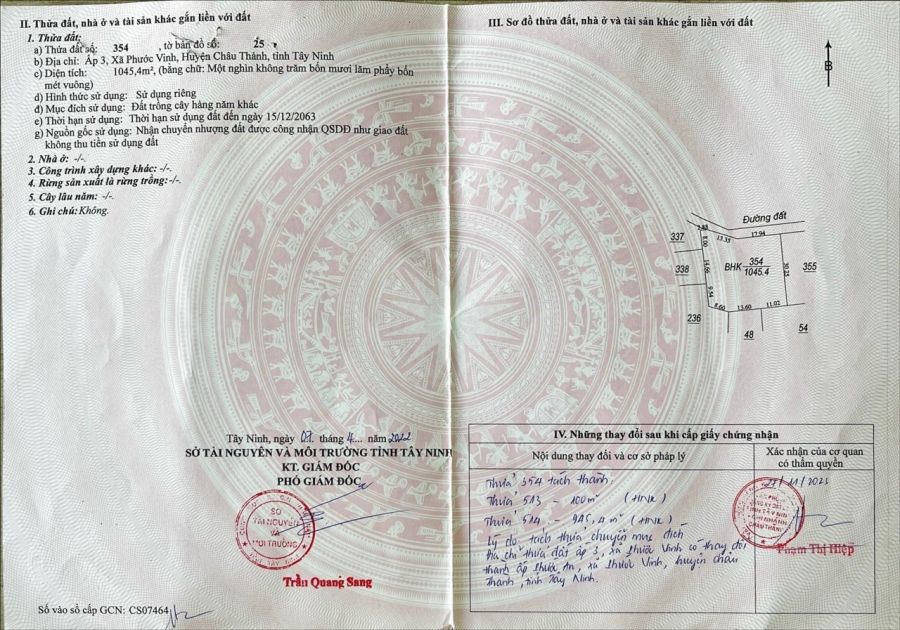 II. Thửa đất, nhà ở và tài sản khác gắn liền với đất
1. Thửa đất:
a) Thửa đất số: 354 , tờ bản đồ số: 25
b) Địa chỉ: Ấp 3, Xã Phước Vinh, Huyện Châu Thành, tỉnh Tây Ninh
c) Diện tích: 1045,4m², (bằng chữ: Một nghìn không trăm bốn mươi lăm phẩy bốn
mét vuông)
d) Hình thức sử dụng: Sử dụng riêng
đ) Mục đích sử dụng: Đất trồng cây hàng năm khác
e) Thời hạn sử dụng: Thời hạn sử dụng đất đến ngày 15/12/2063
g) Nguồn gốc sử dụng: Nhận chuyển nhượng đất được công nhận QSDĐ như giao đất
không thu tiền sử dụng đất
2. Nhà ở: -/-.
3. Công trình xây dựng khác: -/-.
4. Rừng sản xuất là rừng trồng:-/-.
5. Cây lâu năm: -/-.
6. Ghi chú:Không.
Tây Ninh, ngày 07 tháng 4 năm 2022
SỞ TÀI NGUYÊN VÀ MÔI TRƯỜNG TỈNH TÂY NINH
KT. GIÁM ĐỐC
PHÓ GIÁM ĐỐC
SỞ
TÀI NGUYÊN
VÀ
MÔI TRƯỜNG
Trần Quang Sang
Số vào sổ cấp GCN: CS07464
III. Sơ đồ thửa đất, nhà ở và tài sản khác gắn liền với đất
B
Đường đất
13.35 17.94
337
8.00
338
14.66
BHK 354
1045.4
30.25
355
9.54
8.60 13.60 11.02
236
48
54
IV. Những thay đổi sau khi cấp giấy chứng nhận
Nội dung thay đổi và cơ sở pháp lý
Xác nhận của cơ quan
có thẩm quyền
Thửa 354 tách thành:
Thửa 513 - 100m² (HNK)
Thửa 514 - 945,4 m² (HNK)
Lý do: tách thửa chuyển mục đích
Địa chỉ thửa đất ấp 3, xã Phước Vinh có thay đổi
thành ấp Phước An, xã Phước Vinh, huyện Châu
Thành, tỉnh Tây Ninh.
/11/2023
Phạm Thị Hiệp